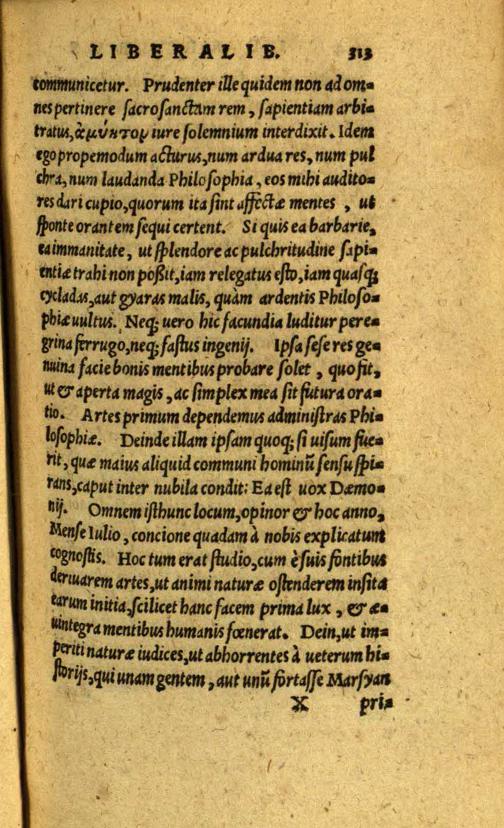 LIBERALIB. 313
communicetur. Prudenter ille quidem non ad om=
nes pertinere sacrosanctam rem, sapientiam arbi=
tratus, ἀμύητοις iure solemnium interdixit. Idem
ego propemodum acturus, num ardua res, num pul
chra, num laudanda Philosophia, eos mihi audito=
res dari cupio, quorum ita sint affectæ mentes, ut
sponte orantem sequi certent. Si quis ea barbarie,
ea immanitate, ut splendore ac pulchritudine sapi=
entiæ trahi non poßit, iam relegatus esto, iam quasq;
cycladas, aut gyaras malis, quàm ardentis Philoso=
phiæ uultus. Neq; uero hic facundia luditur pere=
grina ferrugo, neq; fastus ingenij. Ipsa sese res ge=
nuina facie bonis mentibus probare solet, quo fit,
ut & aperta magis, ac simplex mea sit futura ora=
tio. Artes primum dependemus administras Phi=
losophiæ. Deinde illam ipsam quoq; si uisum fue=
rit, quæ maius aliquid communi hominũ sensu spi=
rans, caput inter nubila condit: Ea est uox Dæmo=
nij. Omnem isthunc locum, opinor & hoc anno,
Mense Iulio, concione quadam à nobis explicatum
cognostis. Hoc tum erat studio, cum è suis fontibus
deriuarem artes, ut animi naturæ ostenderem insita
earum initia, scilicet hanc facem prima lux, & æ=
uintegra mentibus humanis fœnerat. Dein, ut im=
periti naturæ iudices, ut abhorrentes à ueterum hi=
storijs, qui unam gentem, aut unũ fortasse Marsyan
X pri=